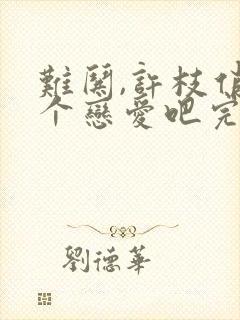 難関,許枝俏
个戀愛吧完
劉德華